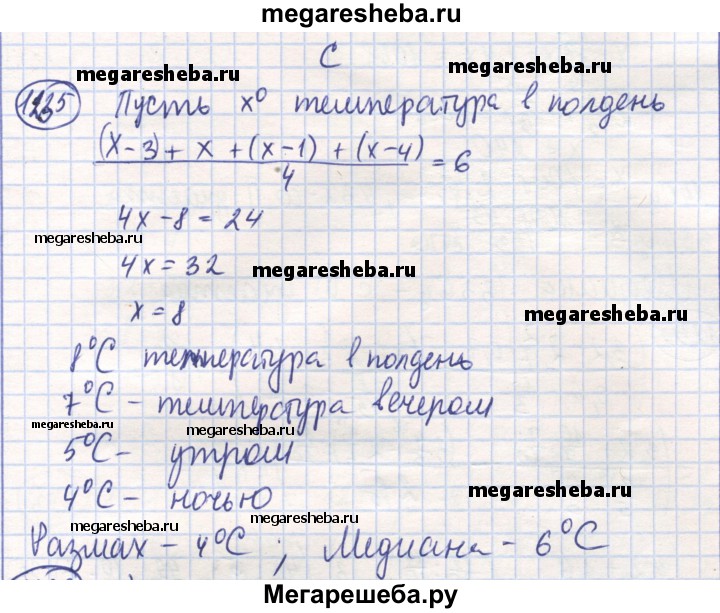 megaresheba.ru
С
megaresheba.ru
megaresheba.ru
Пусть x° температура в полдень
(x-3)+ x +(x-1) +(x-4)
4
= 6
4x-8=24
megaresheba.ru
4x=32
megaresheba.ru
megaresheba.ru
x=8
8°С температура в полдень
7°С - температура вечером
megaresheba.ru
megaresheba.ru
megaresheba.ru
5°С - утром
4°С - ночью
megaresheba.ru
megaresheba.ru
megaresheba.ru
Размах - 4°С ; Медиана - 6°С
Мегарешеба.ру